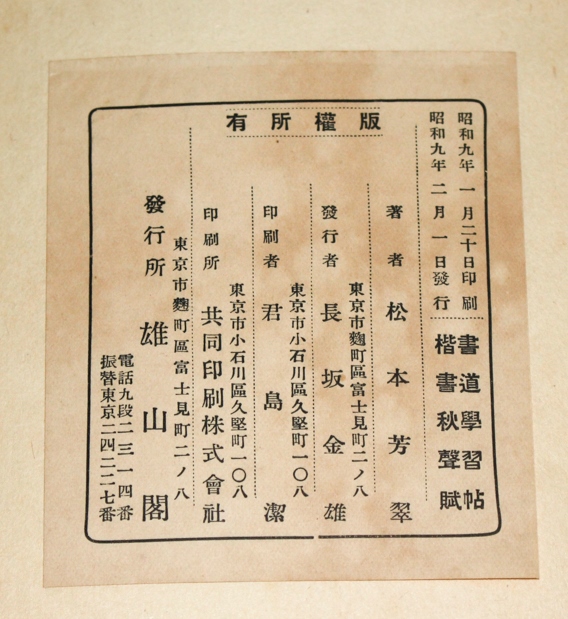 昭和九年一月二十日印刷
昭和九年二月一日發行
書道學習帖
楷書秋聲賦
版權所有
著者 松本芳翠
東京市麴町區富士見町二ノ八
發行者 長坂金雄
東京市小石川區久堅町一〇八
印刷者 君島潔
東京市小石川區久堅町一〇八
印刷所 共同印刷株式會社
東京市麴町區富士見町二ノ八
發行所 雄山閣
電話九段二三一四番
振替東京二四二二七番